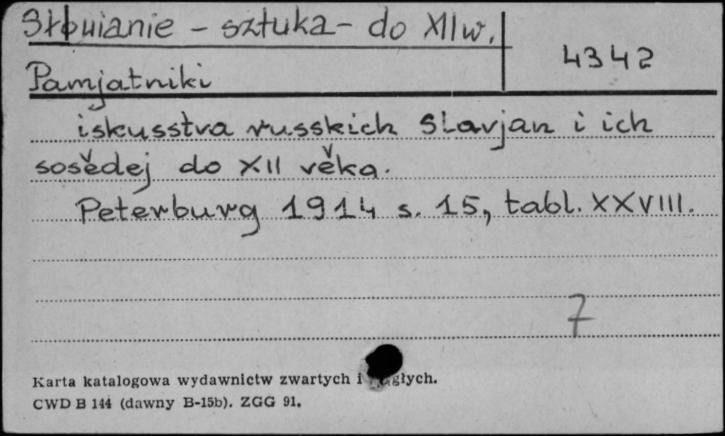 Słowianie - sztuka - do XII w.
4342
Pamjatniki
iskusstva russkich Slavjan i ich
sosědej do XII věka.
Peterburg 1914 s. 15, tabl. XXVIII.
7
Karta katalogowa wydawnictw zwartych i
CWD B 144 (dawny B-15b). ZGG 91.